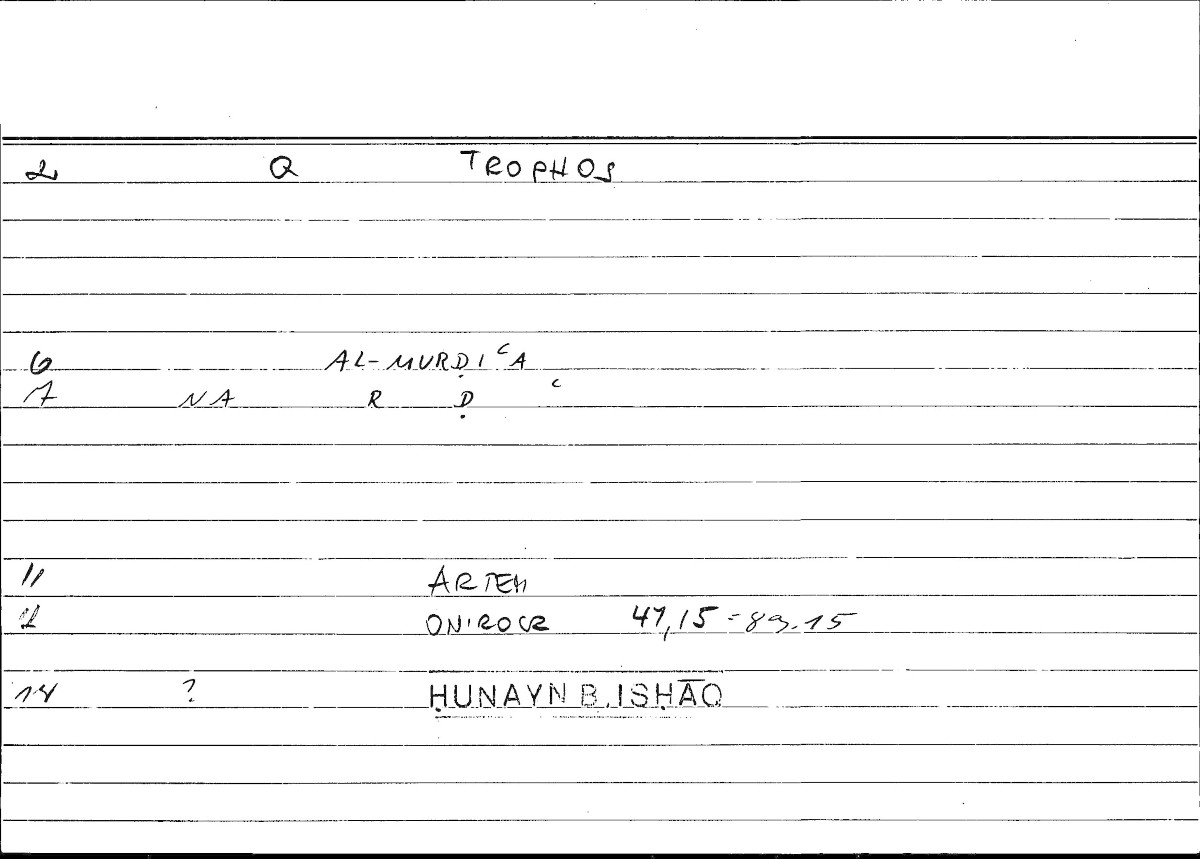 2 Q TROPHOS
6 AL-MURḌIʿA
7 NA R Ḍ ʿ
11 ARTEM
12 ONIROCR 47,15 = 89.15
14 ? ḤUNAYN B. ISḤĀQ